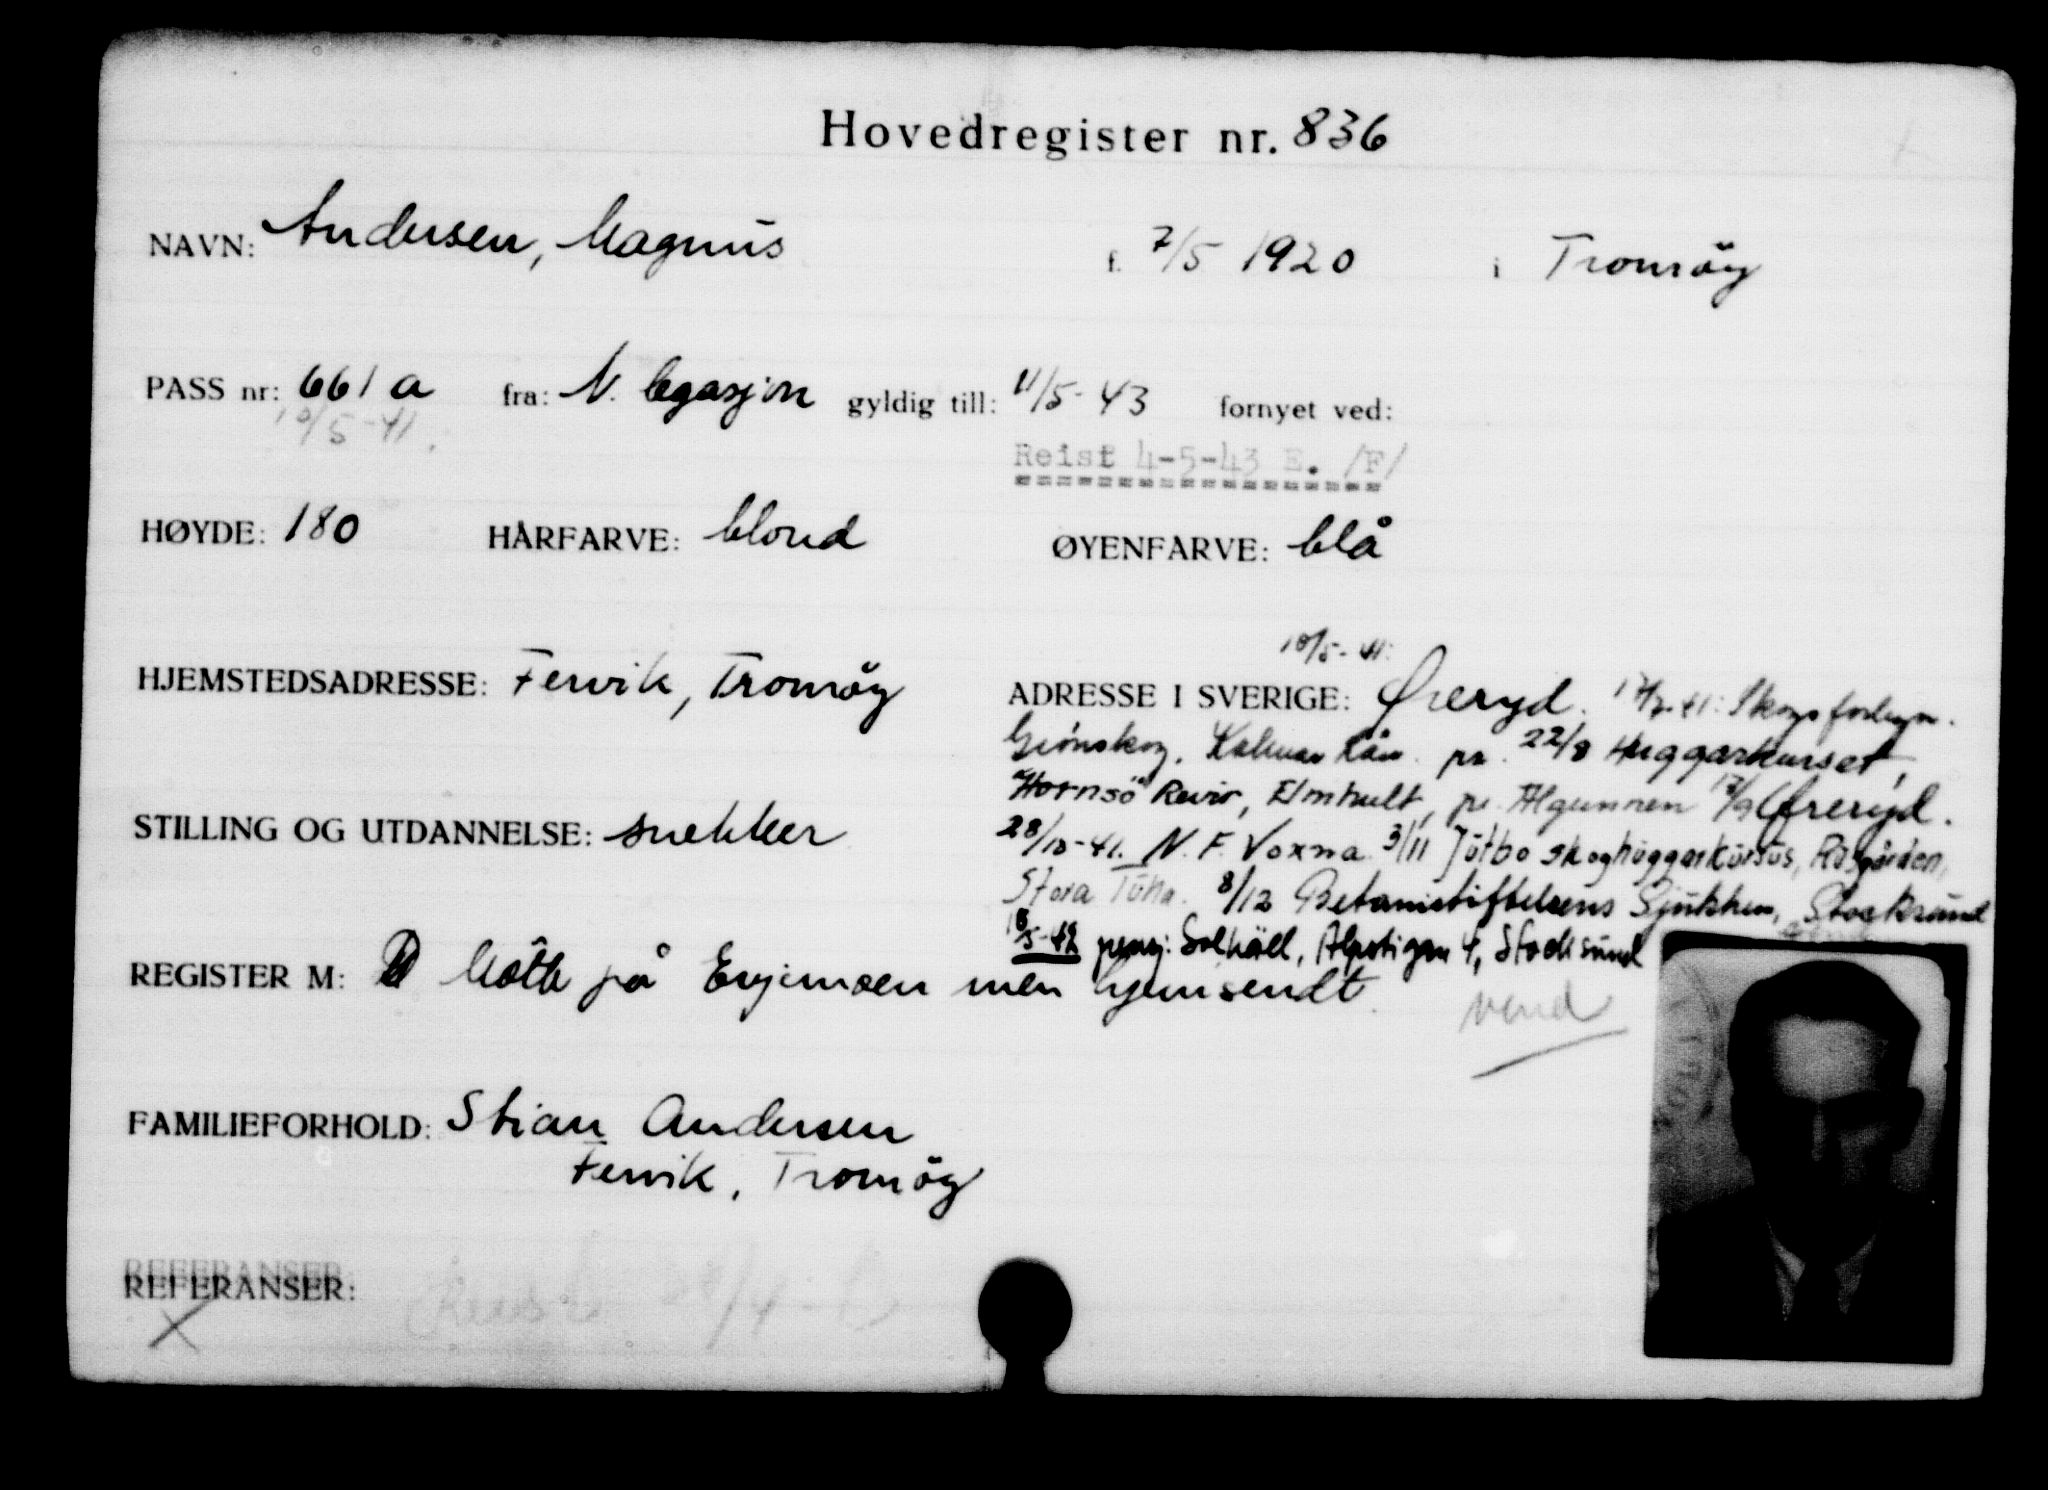 Hovedregister nr. 836
NAVN: Andersen, Magnus f. 7/5 1920 i Tromöy
PASS nr: 661 a fra: N. legasjon gyldig till: 11/5-43 fornyet ved:
10/5-41.
Reist 4-5-43 E. /F/
HØYDE: 180 HÅRFARVE: blond ØYENFARVE: blå
10/5-41:
HJEMSTEDSADRESSE: Fervik, Tromöy ADRESSE I SVERIGE: Øreryd. 17/7-41: Skogsforlegn.
Grönskog, Kalmar Län. pr. 22/8 Huggarkurset,
STILLING OG UTDANNELSE: snekker
"Hornsö" Revir, Elmhult, pr. Algunnen 17/9 Øreryd.
28/10-41. N. F. Voxna 3/11 Jötbo skoghuggarkursus, Rosgården,
Stora Tuna. 8/12 Betaniastiftelsens Sjukhem, Stocksund
18/5-42 pensj. Solhäll, Alpstigen 4, Stocksund
REGISTER M: Møtte på Evjemoen men hjemsendt.
vend
FAMILIEFORHOLD: Stian Andersen
Fervik, Tromöy
REFERANSER:
X